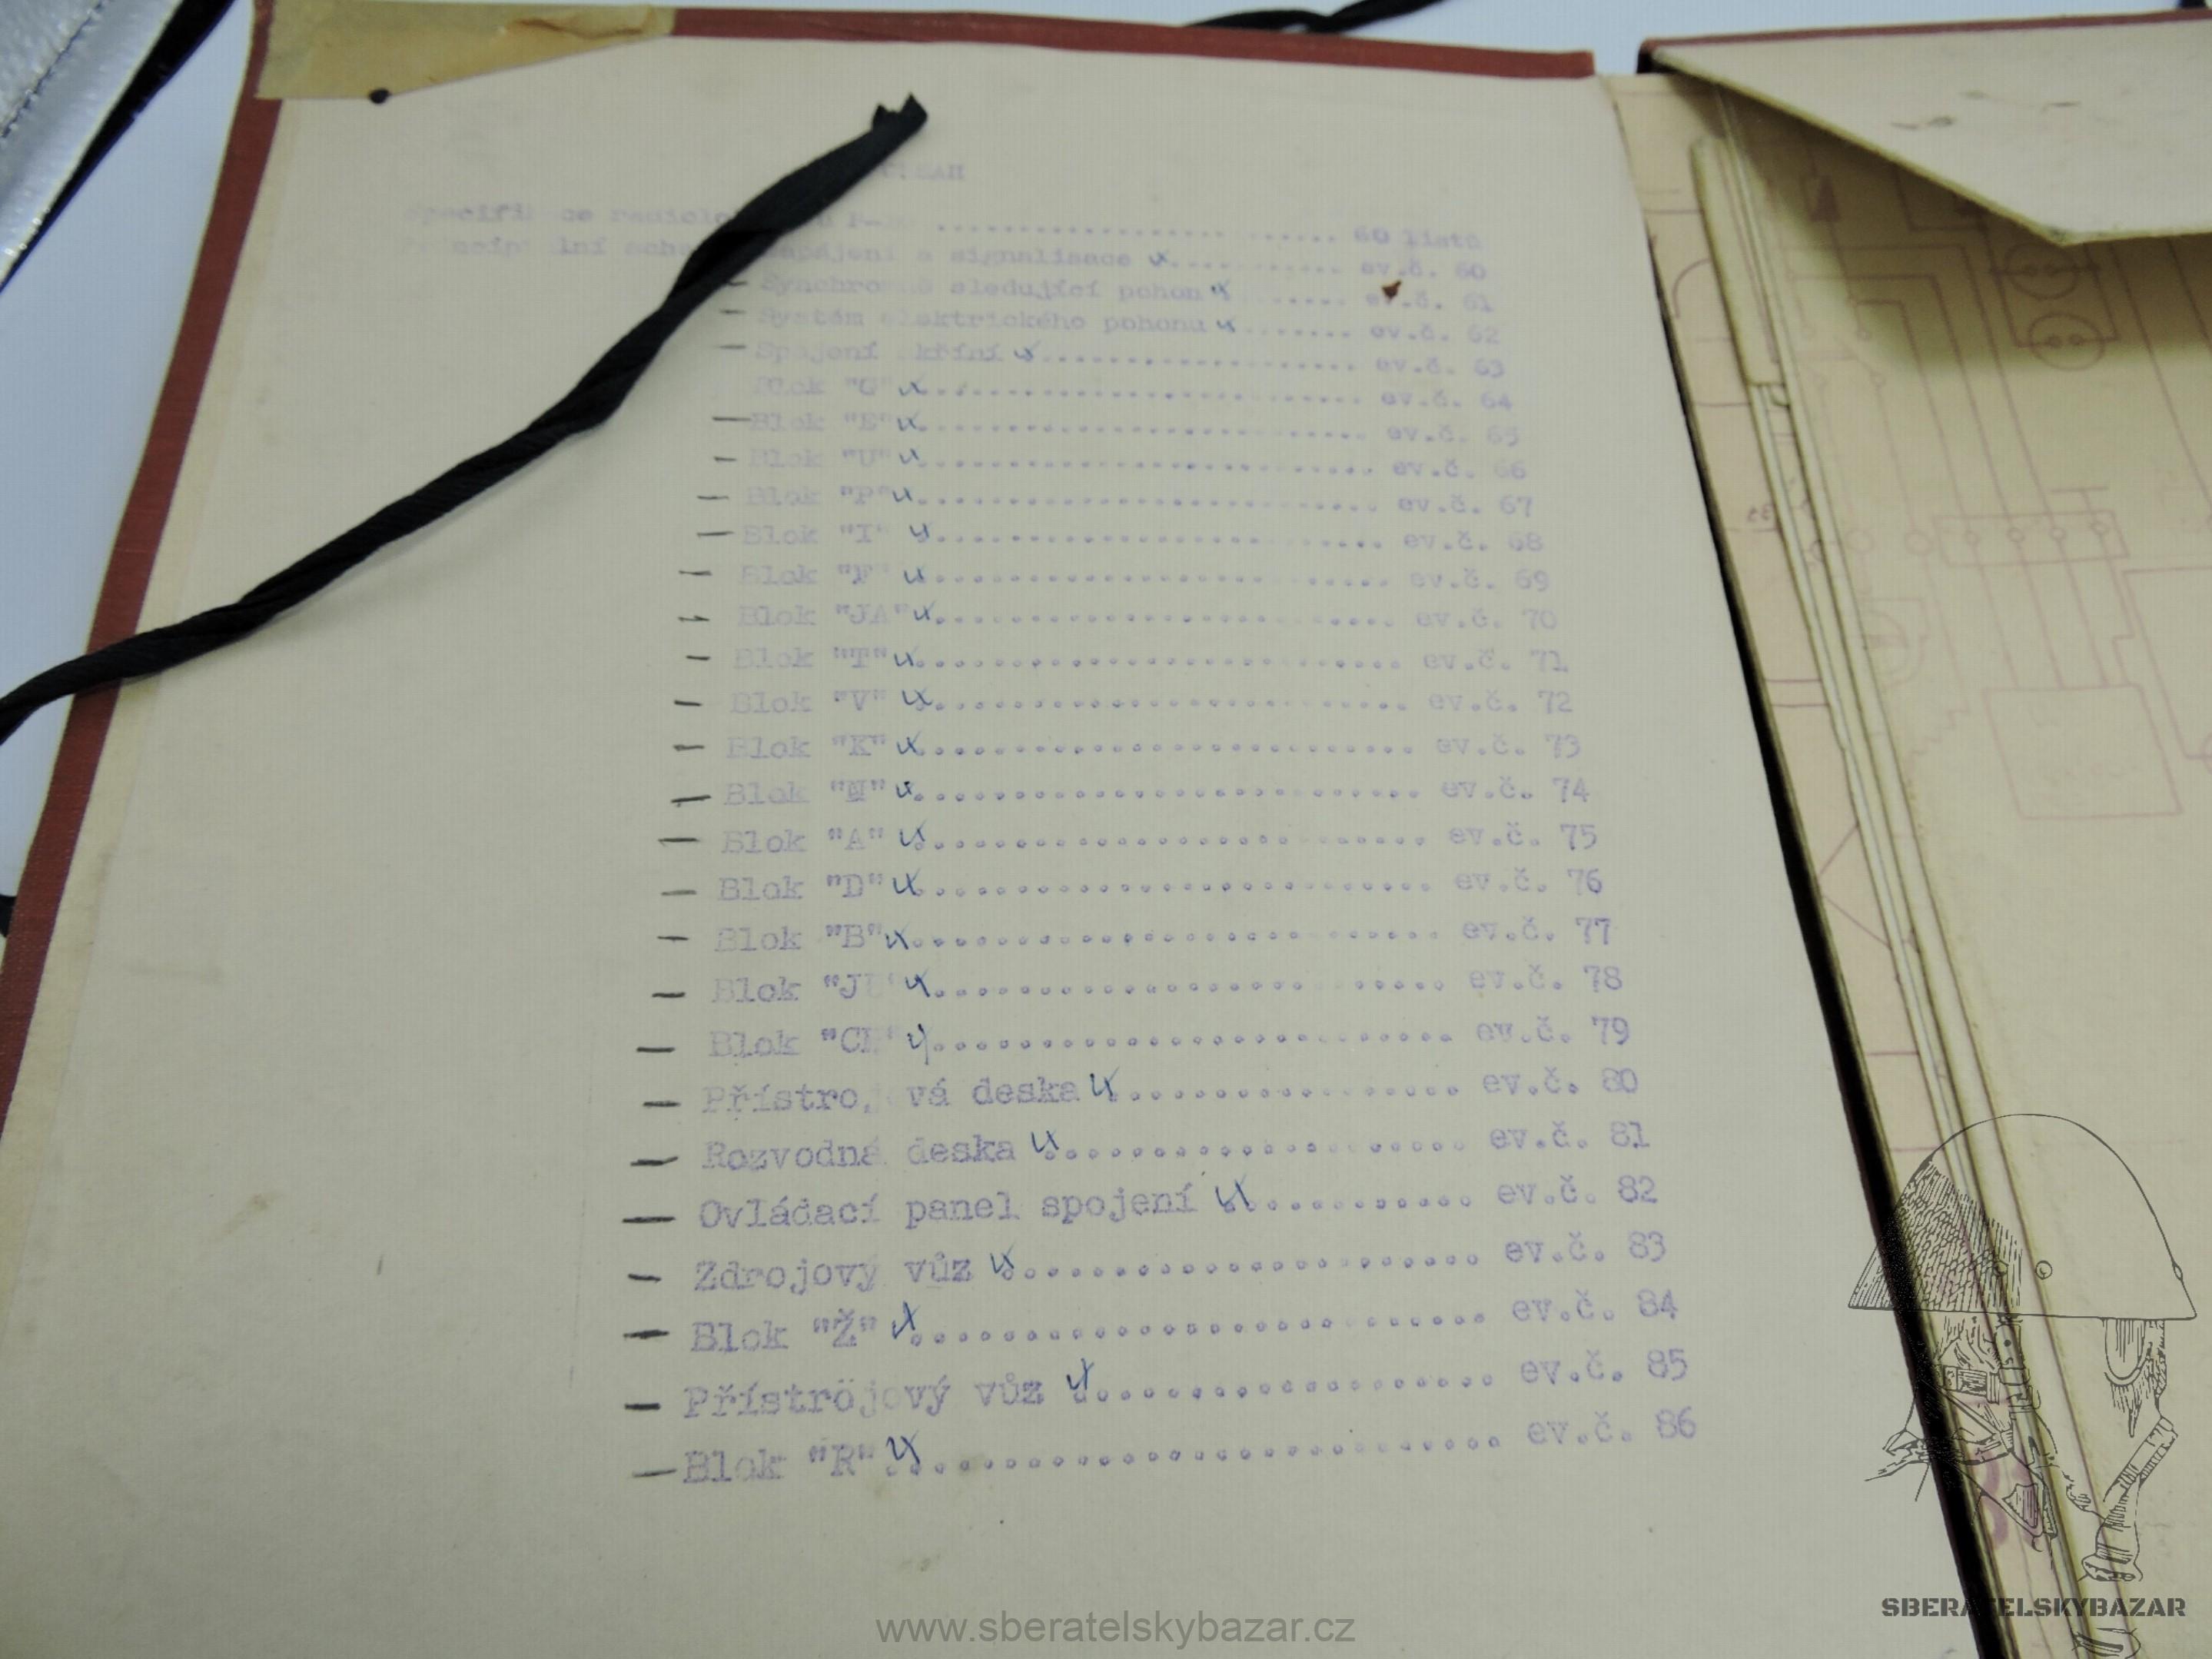 60 listů
signalisace ............ ev.č. 60
sledující pohon ...... ev.č. 61
Systém elektrického pohonu ........ ev.č. 62
Spojení skříní .................... ev.č. 63
Blok ........................... ev.č. 64
Blok "E" ........................... ev.č. 65
Blok "U" ........................... ev.č. 66
Blok "P" ........................... ev.č. 67
Blok "I" ........................... ev.č. 68
Blok "F" ........................... ev.č. 69
Blok "JA" .......................... ev.č. 70
Blok "T" ........................... ev.č. 71
Blok "V" ........................... ev.č. 72
Blok "K" ........................... ev.č. 73
Blok "N" ........................... ev.č. 74
Blok "A" ........................... ev.č. 75
Blok "D" ........................... ev.č. 76
Blok "B" ........................... ev.č. 77
Blok ........................... ev.č. 78
Blok ........................... ev.č. 79
Přístrojová deska ................. ev.č. 80
Rozvodná deska .................... ev.č. 81
Ovládací panel spojení ............ ev.č. 82
Zdrojový vůz ...................... ev.č. 83
Blok "Ž" ........................... ev.č. 84
Přístrojový vůz ................... ev.č. 85
Blok "R" ........................... ev.č. 86
SBERATELSKYBAZAR
www.sberatelskybazar.cz